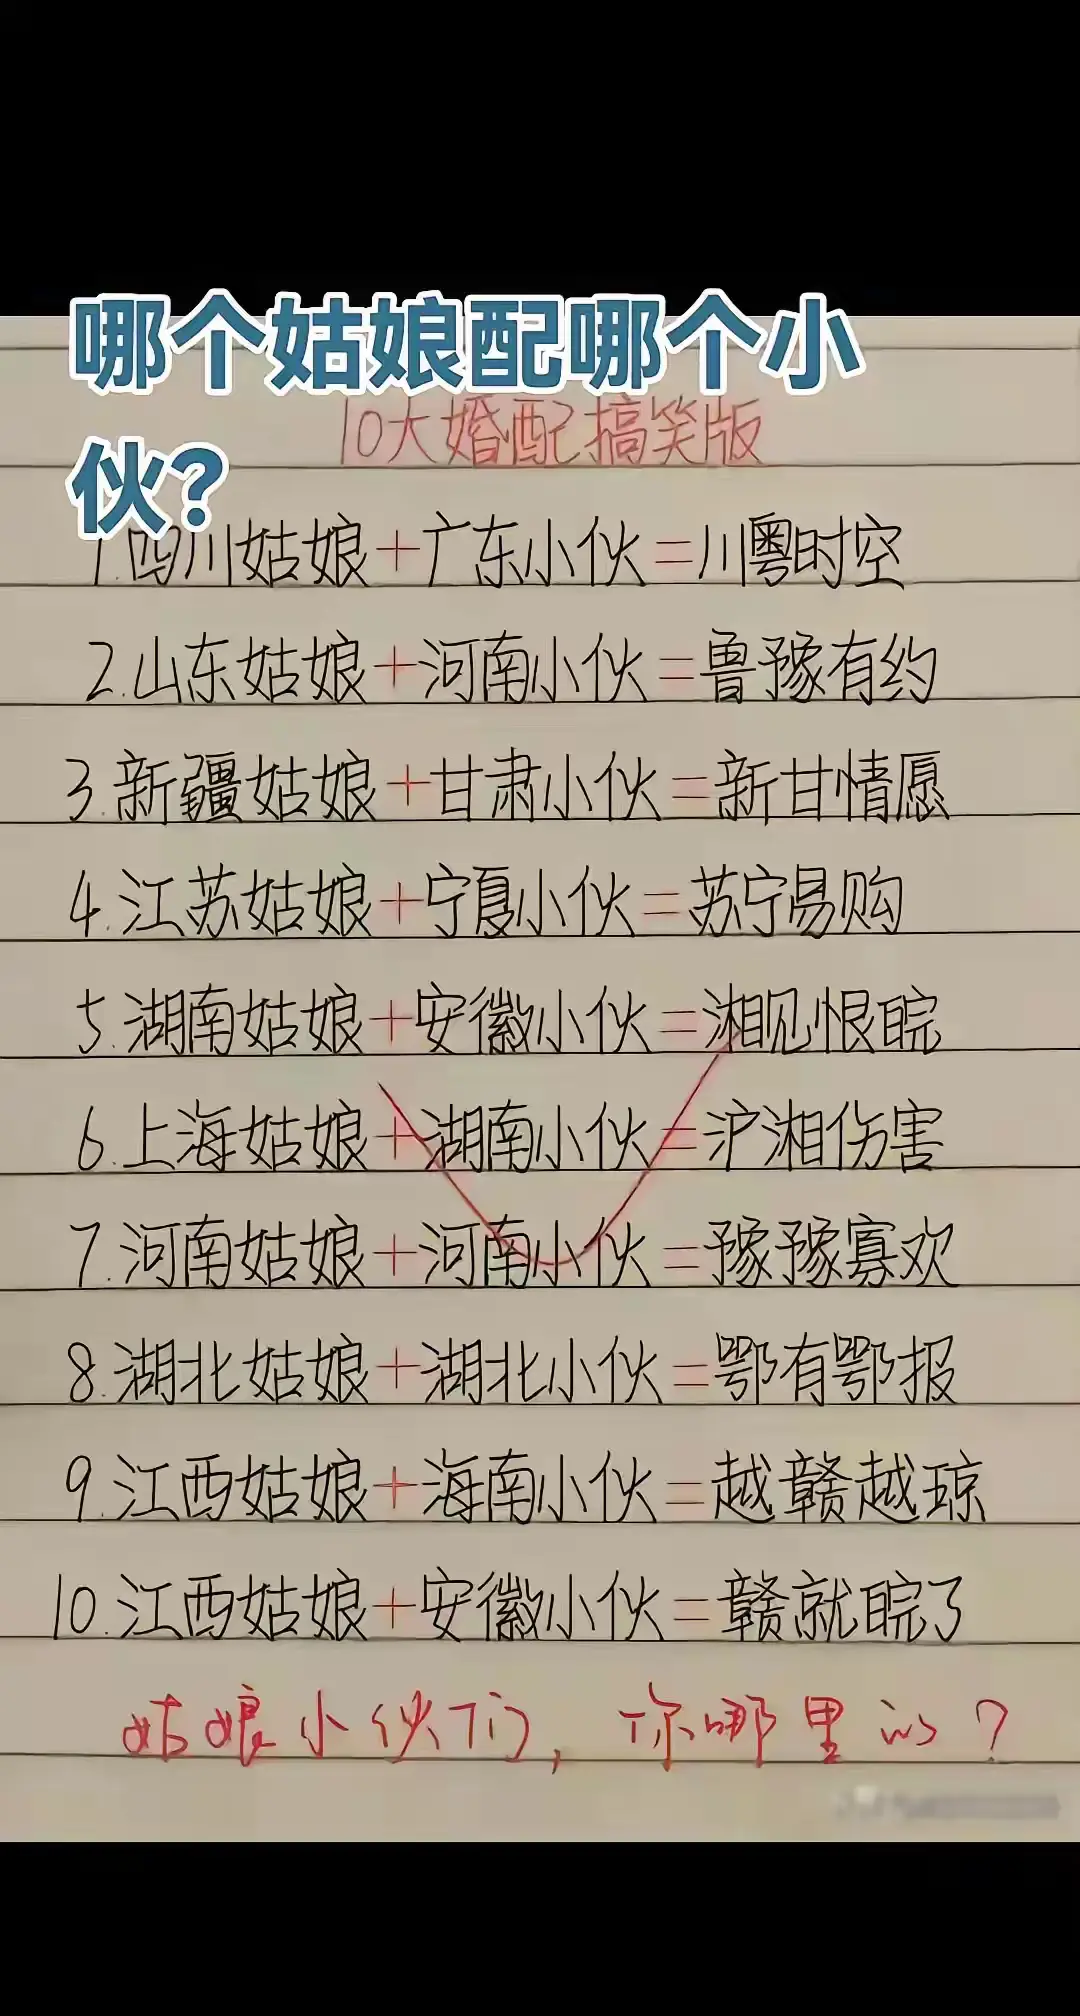 哪个姑娘配哪个小
伙？
10大婚配搞笑版
1.四川姑娘+广东小伙=川粤时空
2.山东姑娘+河南小伙=鲁豫有约
3.新疆姑娘+甘肃小伙=新甘情愿
4.江苏姑娘+宁夏小伙=苏宁易购
5.湖南姑娘+安徽小伙=湘见恨晥
6.上海姑娘+湖南小伙=沪湘伤害
7.河南姑娘+河南小伙=豫豫寡欢
8.湖北姑娘+湖北小伙=鄂有鄂报
9.江西姑娘+海南小伙=越赣越琼
10.江西姑娘+安徽小伙=赣就晥了
姑娘小伙们，你哪里的？